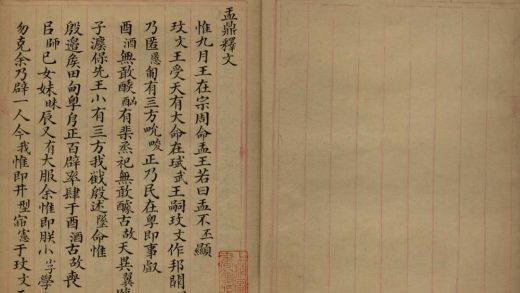 盂鼎釋文
惟九月王在宗周命盂王若曰盂不丕顯
玟文王受天有大命在珷武王嗣玟文作邦闢
乃匿慝匍有三方畯正乃民在雩即事𠭯
酉酒無敢酖有祡烝祀無敢醵古故天異翼
子灋保先王小有三方我戠殷述墜命惟
殷邊矦田甸雩殷正百辟率肄于酉酒古故喪
𠂤師巳女妹昧辰又有大服余惟即朕小子學
勿克余乃辟一人今我惟即井型㐭憲于玟文王